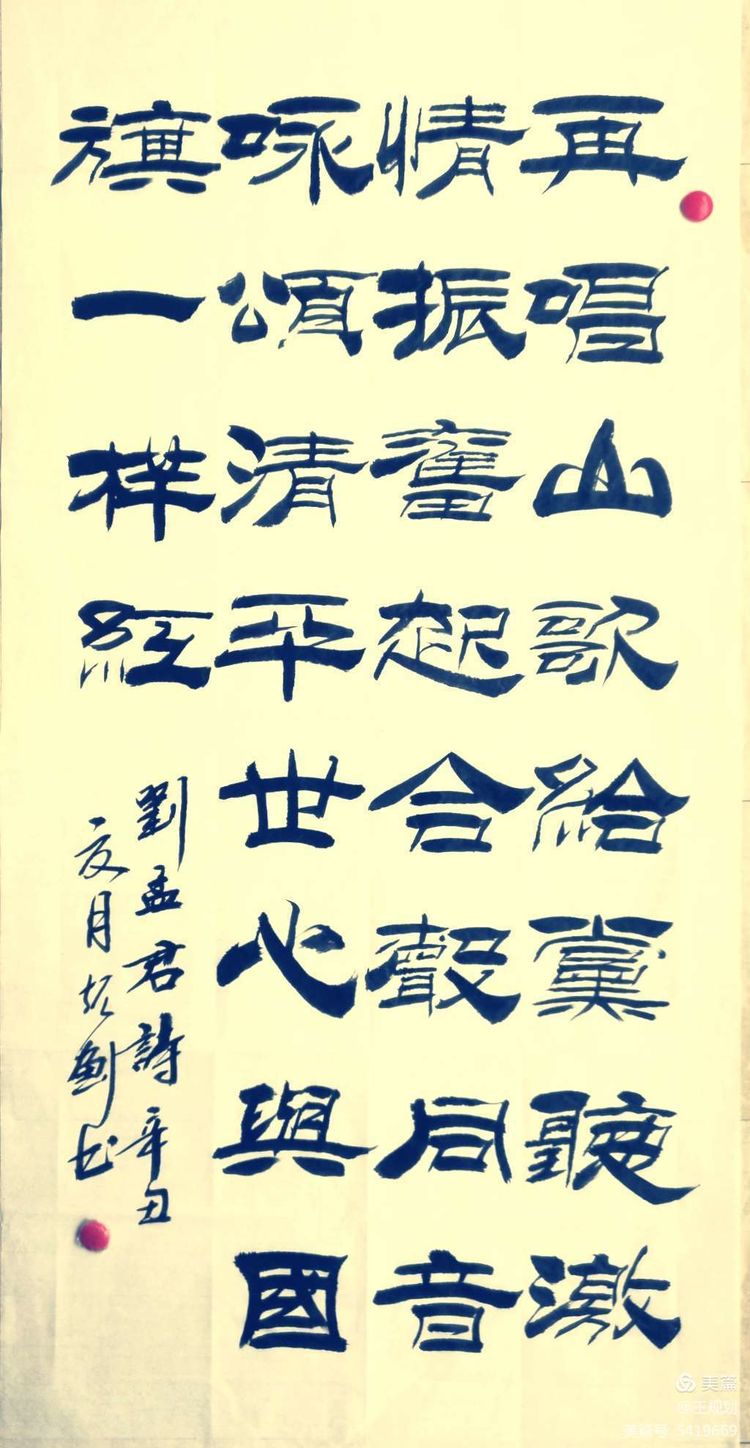 再唱山歌給黨聽激
情振奮起合聲同音
咏頌清平世心與國
旗一样紅
劉孟君詩辛丑
夏月劍书
美篇
@王规划
美篇号 5419669